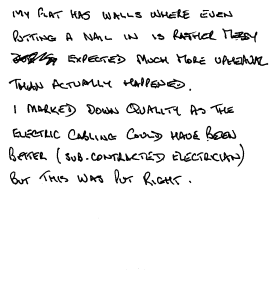 MY FLAT HAS WALLS WHERE EVEN
PUTTING A NAIL IN IS RATHER MESSY
EXPECTED MUCH MORE UPHEAVAL
THAN ACTUALLY HAPPENED.
I MARKED DOWN QUALITY AS THE
ELECTRIC CABLING COULD HAVE BEEN
BETTER (SUB-CONTRACTED ELECTRICIAN)
BUT THIS WAS PUT RIGHT.